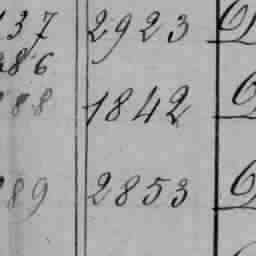 137 2923
286
288 1842
289 2853